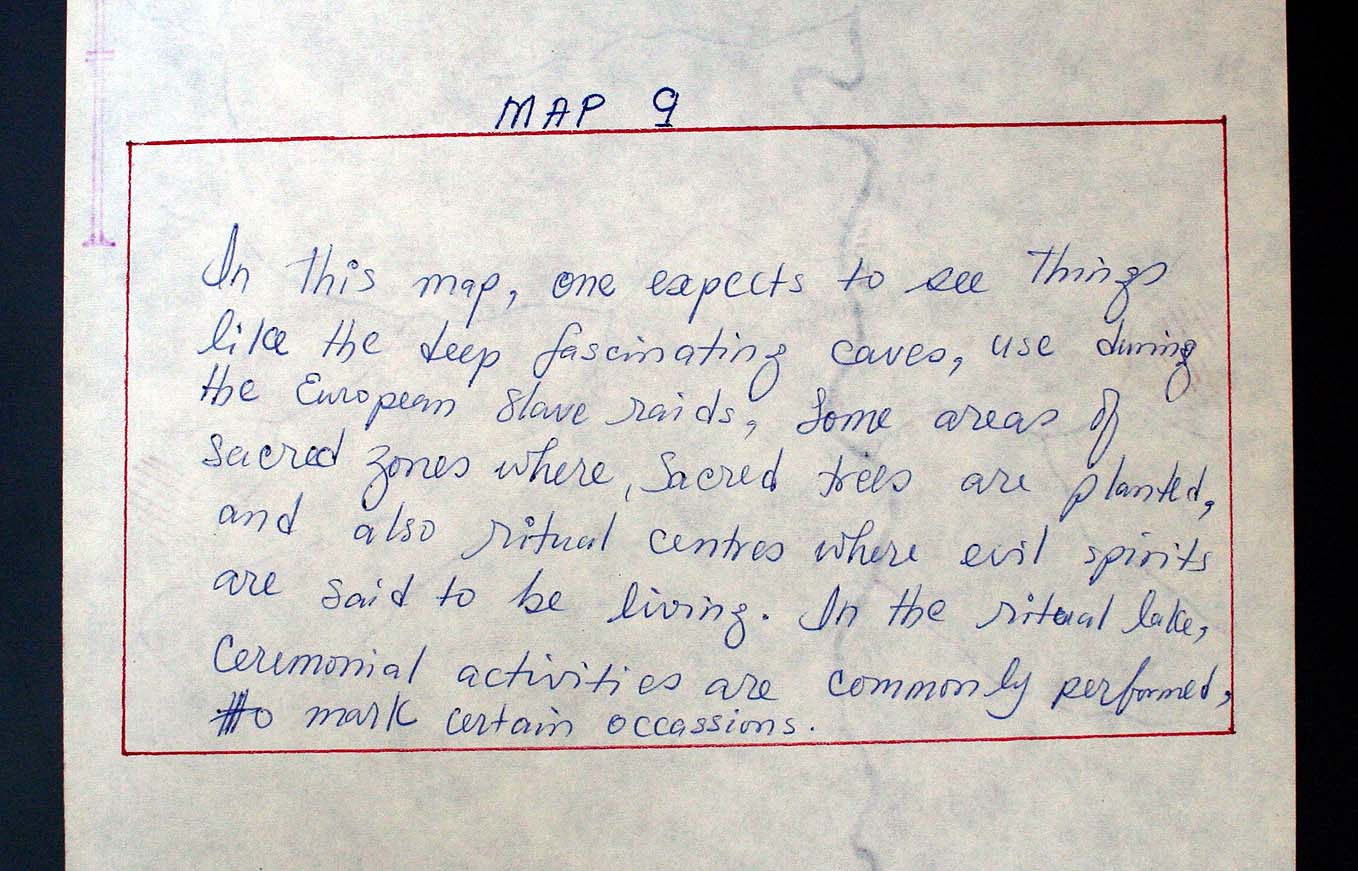 MAP 9
In this map, one expects to see things
like the deep fascinating caves, use during
the European Slave raids, Some areas of
sacred zones where, Sacred trees are planted,
and also ritual centres where evil spirits
are said to be living. In the ritual lake,
Ceremonial activities are commonly performed,
to mark certain occassions.